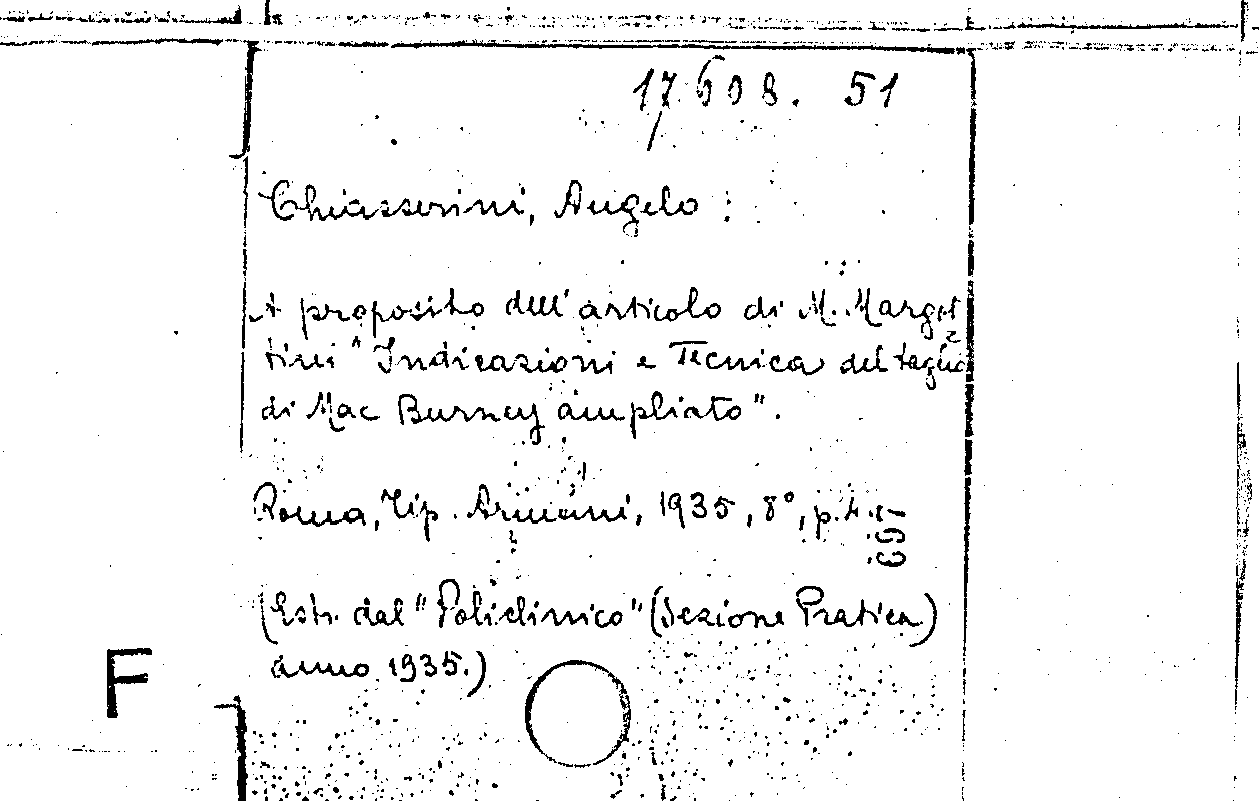 17608. 51
Chiasserini, Angelo :
A proposito dell'articolo di M. Margot
tini "Indicazioni e Tecnica del taglio
di Mac Burney ampliato".
Roma, Tip. Armani, 1935, 8°, p. 4.
(Estr. dal "Policlinico" (Sezione Pratica)
anno 1935.)
F